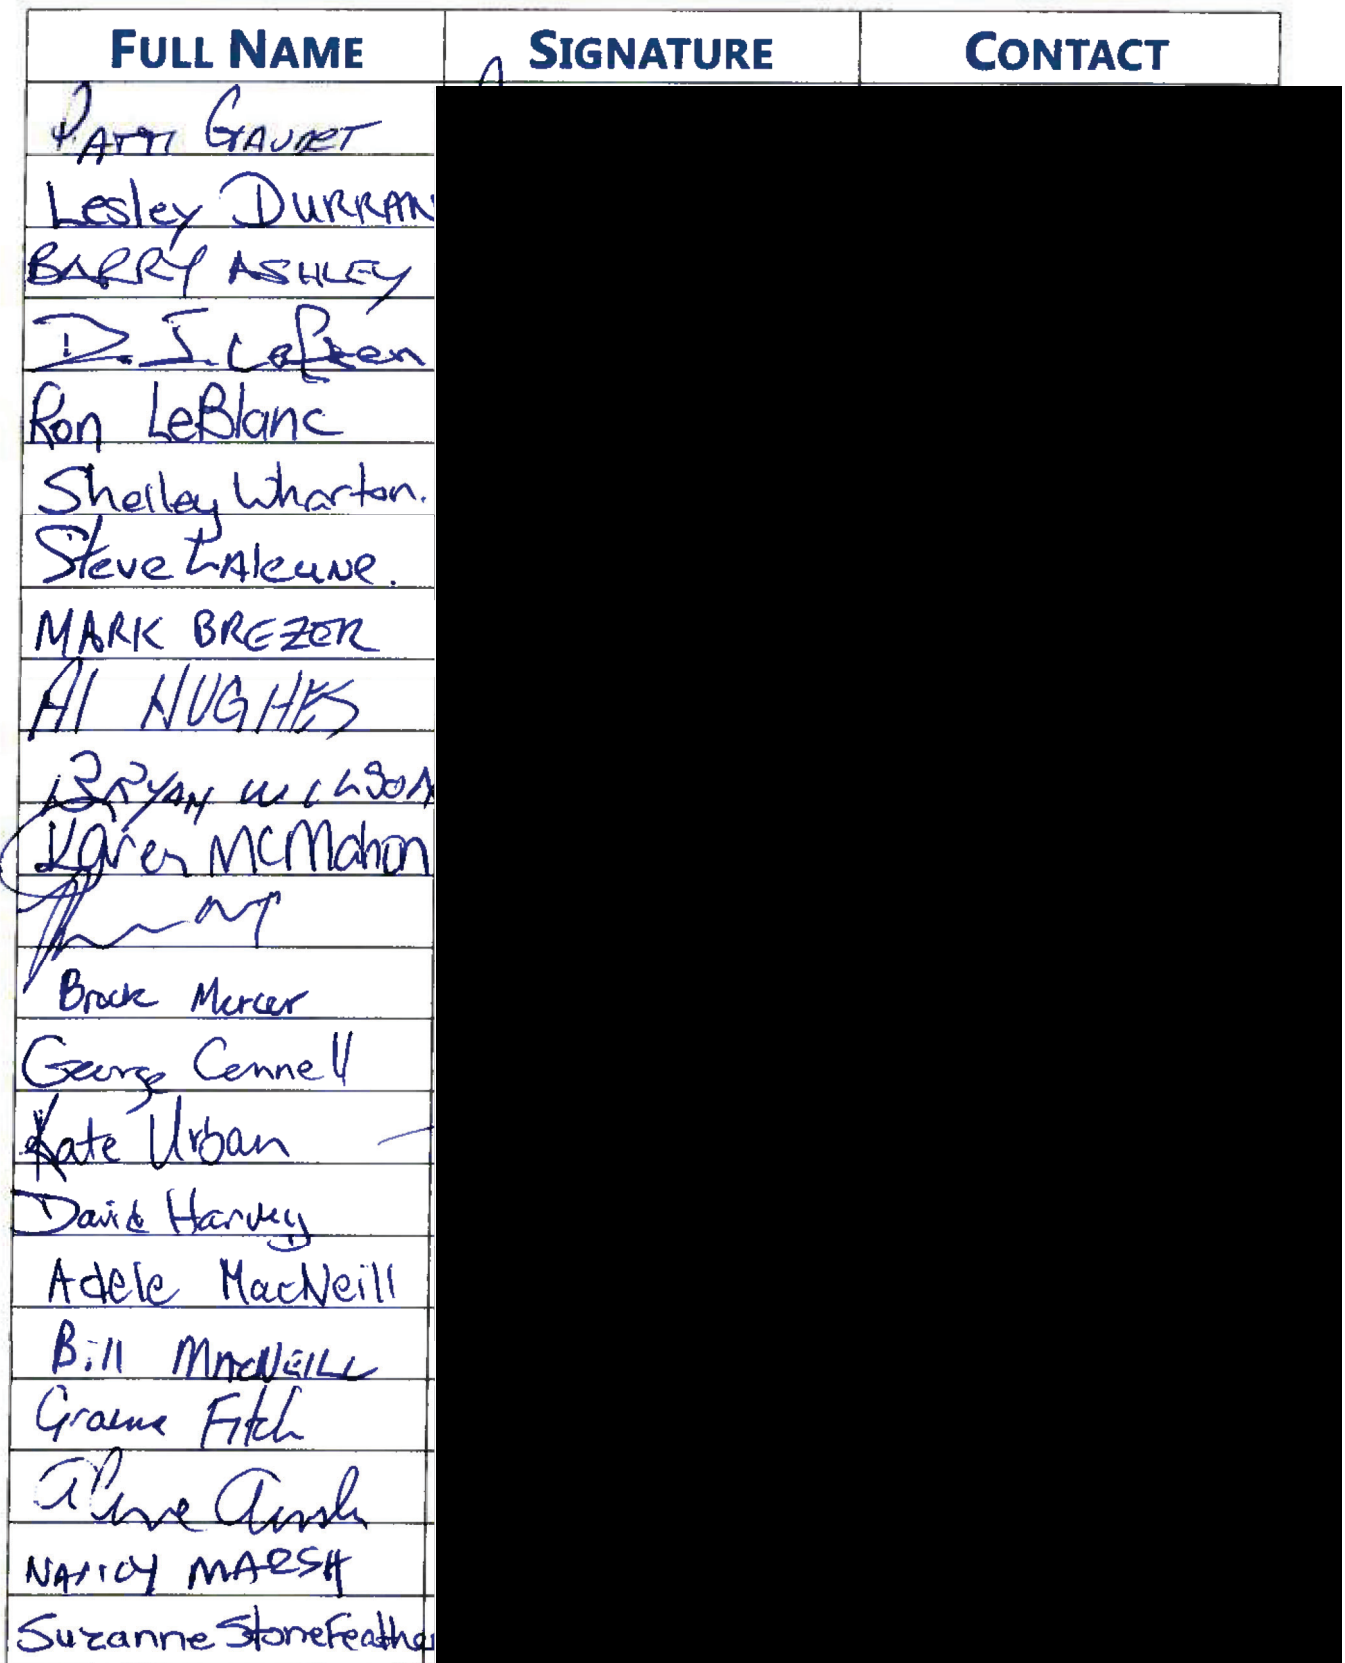 FULL NAME SIGNATURE CONTACT
PATTI GAUDET
Lesley DURRAN
BARRY ASHLEY
D. J.
Ron LeBlanc
Shelley Wharton.
Steve LAleune.
MARK BREZER
Al HUGHES
BRYAN WILSON
Karen McMahon
Brock Mercer
George Connell
Kate Urban
David Harvey
Adele MacNeill
Bill MacNEILL
Graeme Fitch
NANCY MARSH
Suzanne StoneFeathe